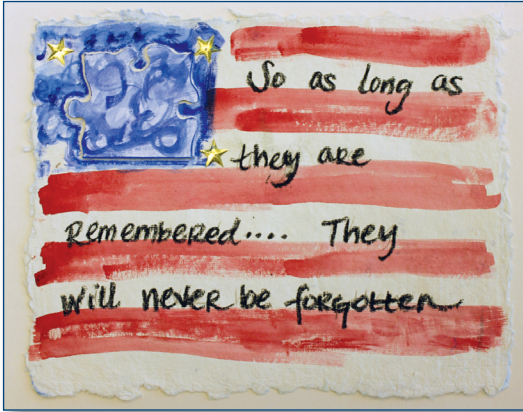 So as long as
they are
Remembered.... They
will never be forgotten